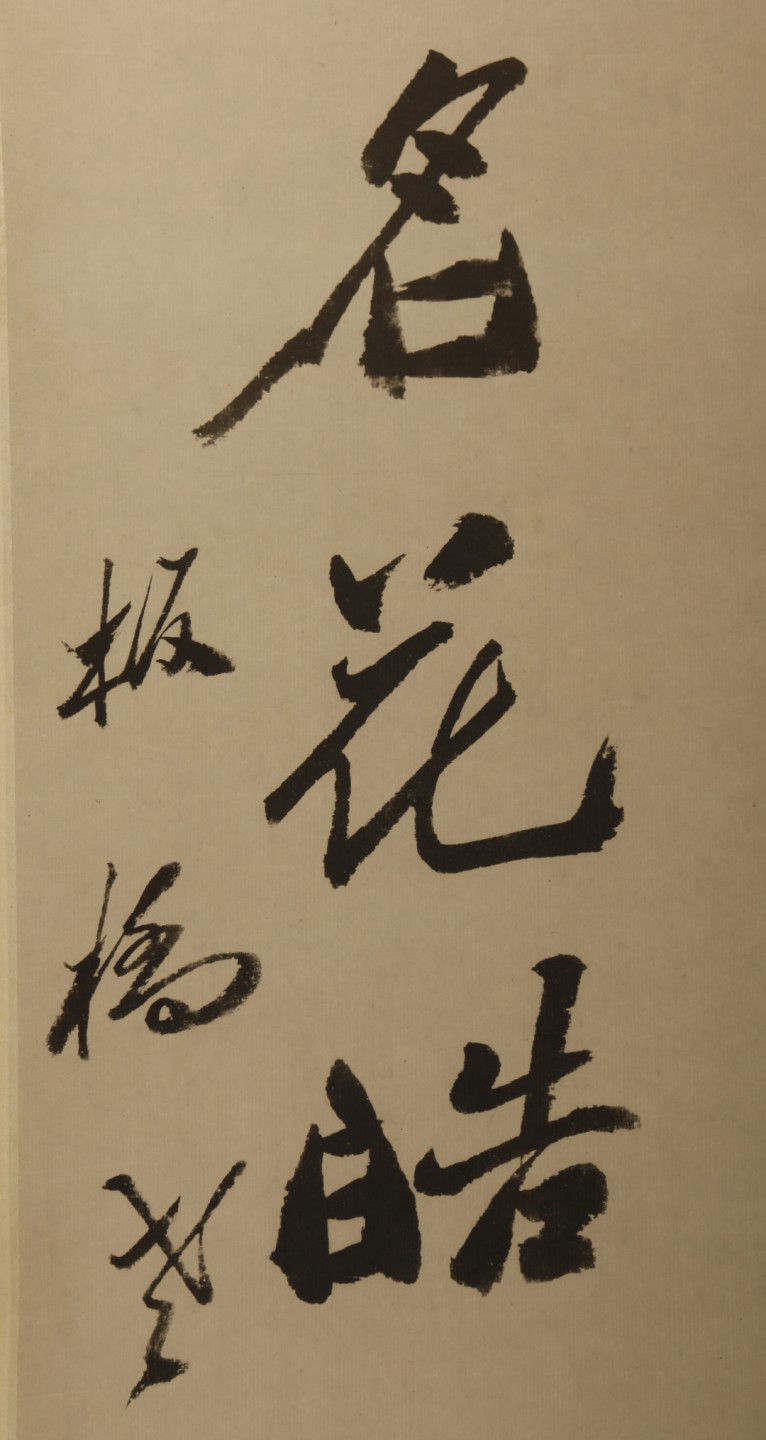 名花皓
板橋燮